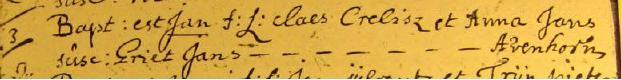 3 Bapt: est Jan f: l: claes Crelisz et Anna Jans
susc: Griet Jans - - - - - - - Avenhorn